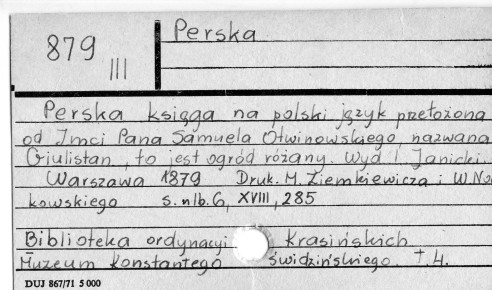 Perska
879
III
Perska księga na polski język przełożona
od Jmci Pana Samuela Otwinowskiego, nazwana
Giulistan, to jest ogród różany. Wyd. I. Janicki.
Warszawa 1879 Druk. M. Ziemkiewicza i W. No-
kowskiego s. nlb. 6, XVIII, 285
Biblioteka ordynacyi Krasińskich
Muzeum Konstantego Świdzińskiego. T. 4.
DUJ 867/71 5 000